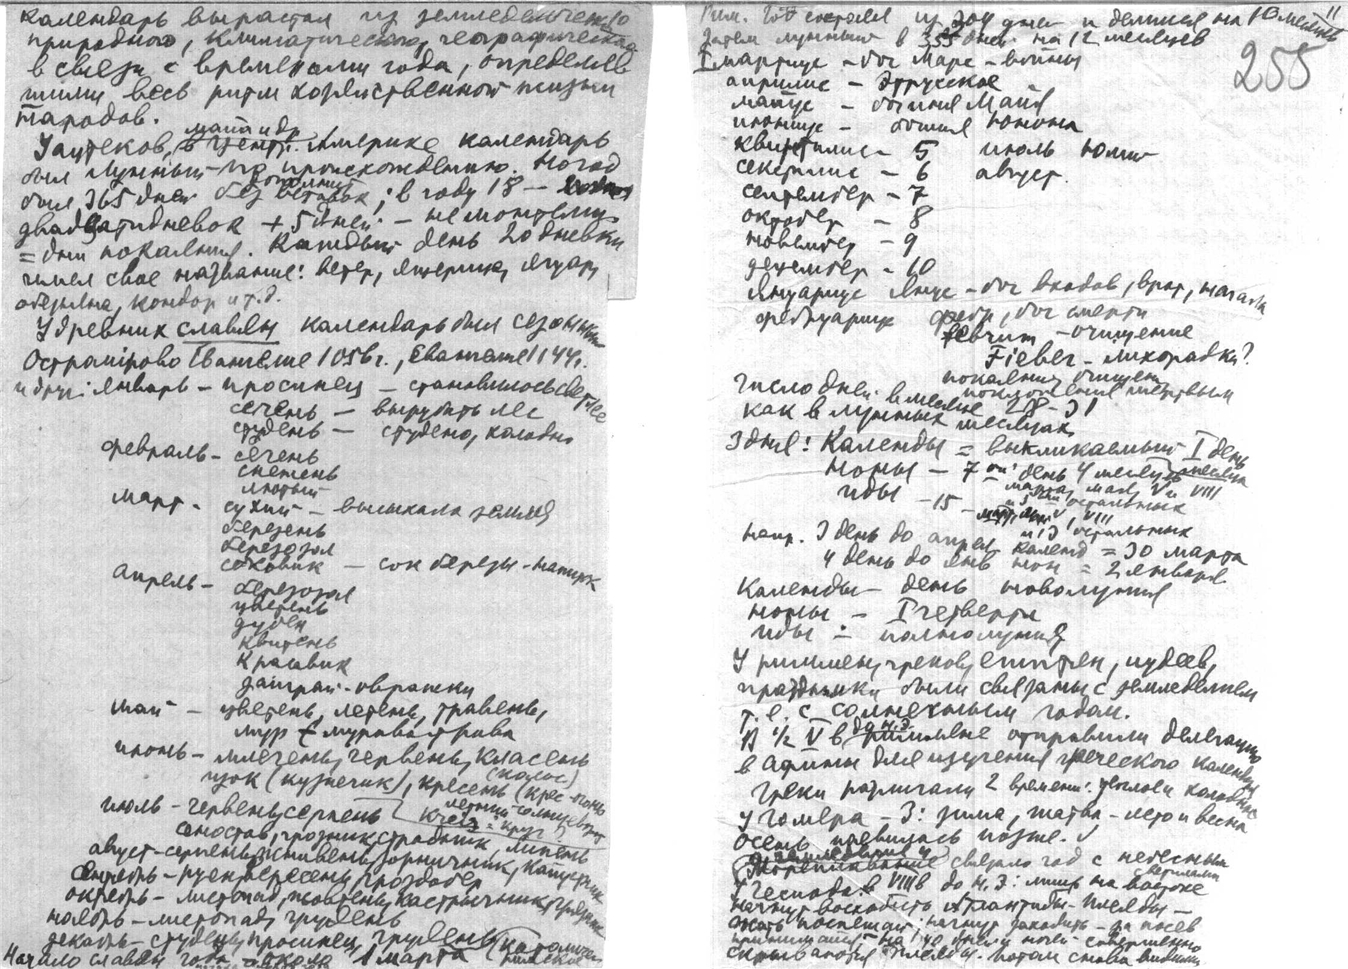 календарь вырастал из земледельческо
природного, климатического, географическая
в связи с временами года, определяв
шими весь ритм хозяйственной жизни
народов.
майа и др.
У ацтеков, в центр. Америке календарь
был лунный по происхождению. Но год
был 365 дней без вставок; в году 18 —
двадцатидневок + 5 дней —
= дни покаяния. Каждый день 20 дневки
имел свое название: ветер, ящерица, ягуар,
обезьяна, кондор и т.д.
У древних славян календарь был сезонным
Остромирово Евангелие 1056 г., Евангелие 1144 г.
и др.: январь — просинец — становилось светлее
сечень — вырубать лес
студень — студено, холодно
февраль — сечень
снежень
лютый
март. — сухий — высыхала земля
березень
березозол
соковик — сок березы — напиток
апрель — березозол
цветень
дубен
квитень
красавик
заиграй-овражки
май — цветень, летень, травень,
мур мурава трава
июнь — млечень, червень, класень (колос)
изок (кузнечик), кресень (крес-огонь
июль — червень, серпень летний солнцеворот
сеностав, грозник, страдник, липень
август — серпень, жнивень, зорничник, капустник
сентябрь — руен, вересень,
октябрь — листопад, жовтень, кастрычник,
ноябрь — листопад, грудень
декабрь — студень, просинец, грудень
Начало славян года — около 1 марта
11
Рим. год состоял из 304 дней и делился на 10 месяцев
Затем лунный в 355 дней на 12 месяцев
255
I марциус — бог Марс — войны
априлис — Этрусское
майус — богиня Майя
июниус — богиня Юнона
квинтилис — 5 июль Юлий
секстилис — 6 август.
септембер — 7
октобер — 8
новембер — 9
децембер — 10
Януариус Янус — бог входов, врат, начала
фебруариус фебр, бог смерти
— очищение
Fieber — лихорадка?
покаяния очищен.
число дней в месяце 28-31
как в лунных месяцах
3 дня: Календы = выкликаемый I день месяца
Ноны — 7ой день 4 месяцев
марта, мая, V и VIII
и 5 остальных
Иды — 15 —
VIII
и 13 остальных
напр. 3 день до апрел календ = 30 марта
4 день до янв нон = 2 января
Календы — день новолуния
ноны — I четверти
Иды = полнолуния
У римлян, греков, египтян, иудеев,
праздники были связаны с земледелием
т. е. с солнечным годом.
В ½ V в до н.э. римляне отправили делегацию
в Афины для изучения греческого календаря
Греки различали 2 времени: теплое и холодное
У Гомера — 3: зима, жатва — лето и весна
осень появилась позже.
земледелие и
Мореплавание связало год с небесными светилами
У Гесиода в VIII в до н.э: лишь на востоке
начнут восходить Атлантиды-Плеяды —
жать поспешай; начнут заходить — за посев
принимайся. На 40 дней и ночей совершенно
скрываются Плеяды. Потом снова видимы